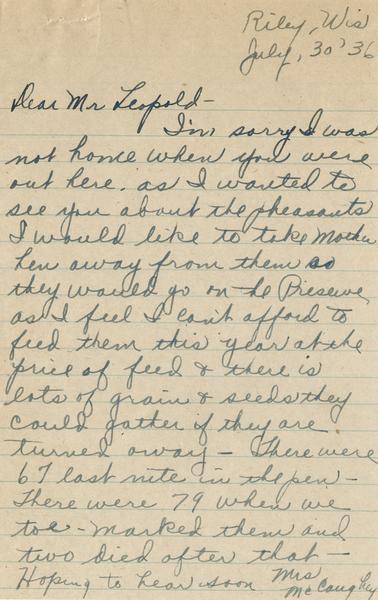 Riley, Wis
July, 30' 36
Dear Mr Leopold-
I'm sorry I was
not home when you were
out here. as I wanted to
see you about the pheasants
I would like to take Mother
hen away from them so
they would go on the Preserve
as I feel I can't afford to
feed them this year at the
price of feed & there is
lots of grain & seeds they
could gather if they are
turned away - There were
67 last nite in the pen -
There were 79 when we
toe - marked them and
two died after that -
Hoping to hear soon Mrs
McCaughey